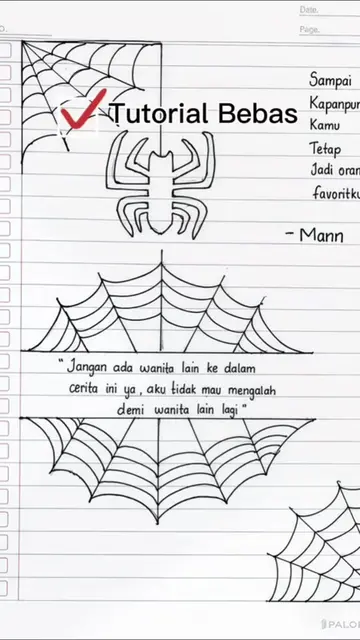 Date.
Page.
Tutorial Bebas
Sampai
Kapanpun
Kamu
Tetap
Jadi
favoritku
- Mann
"Jangan ada wanita lain ke dalam
cerita ini ya, aku tidak mau mengalah
demi wanita lain lagi"